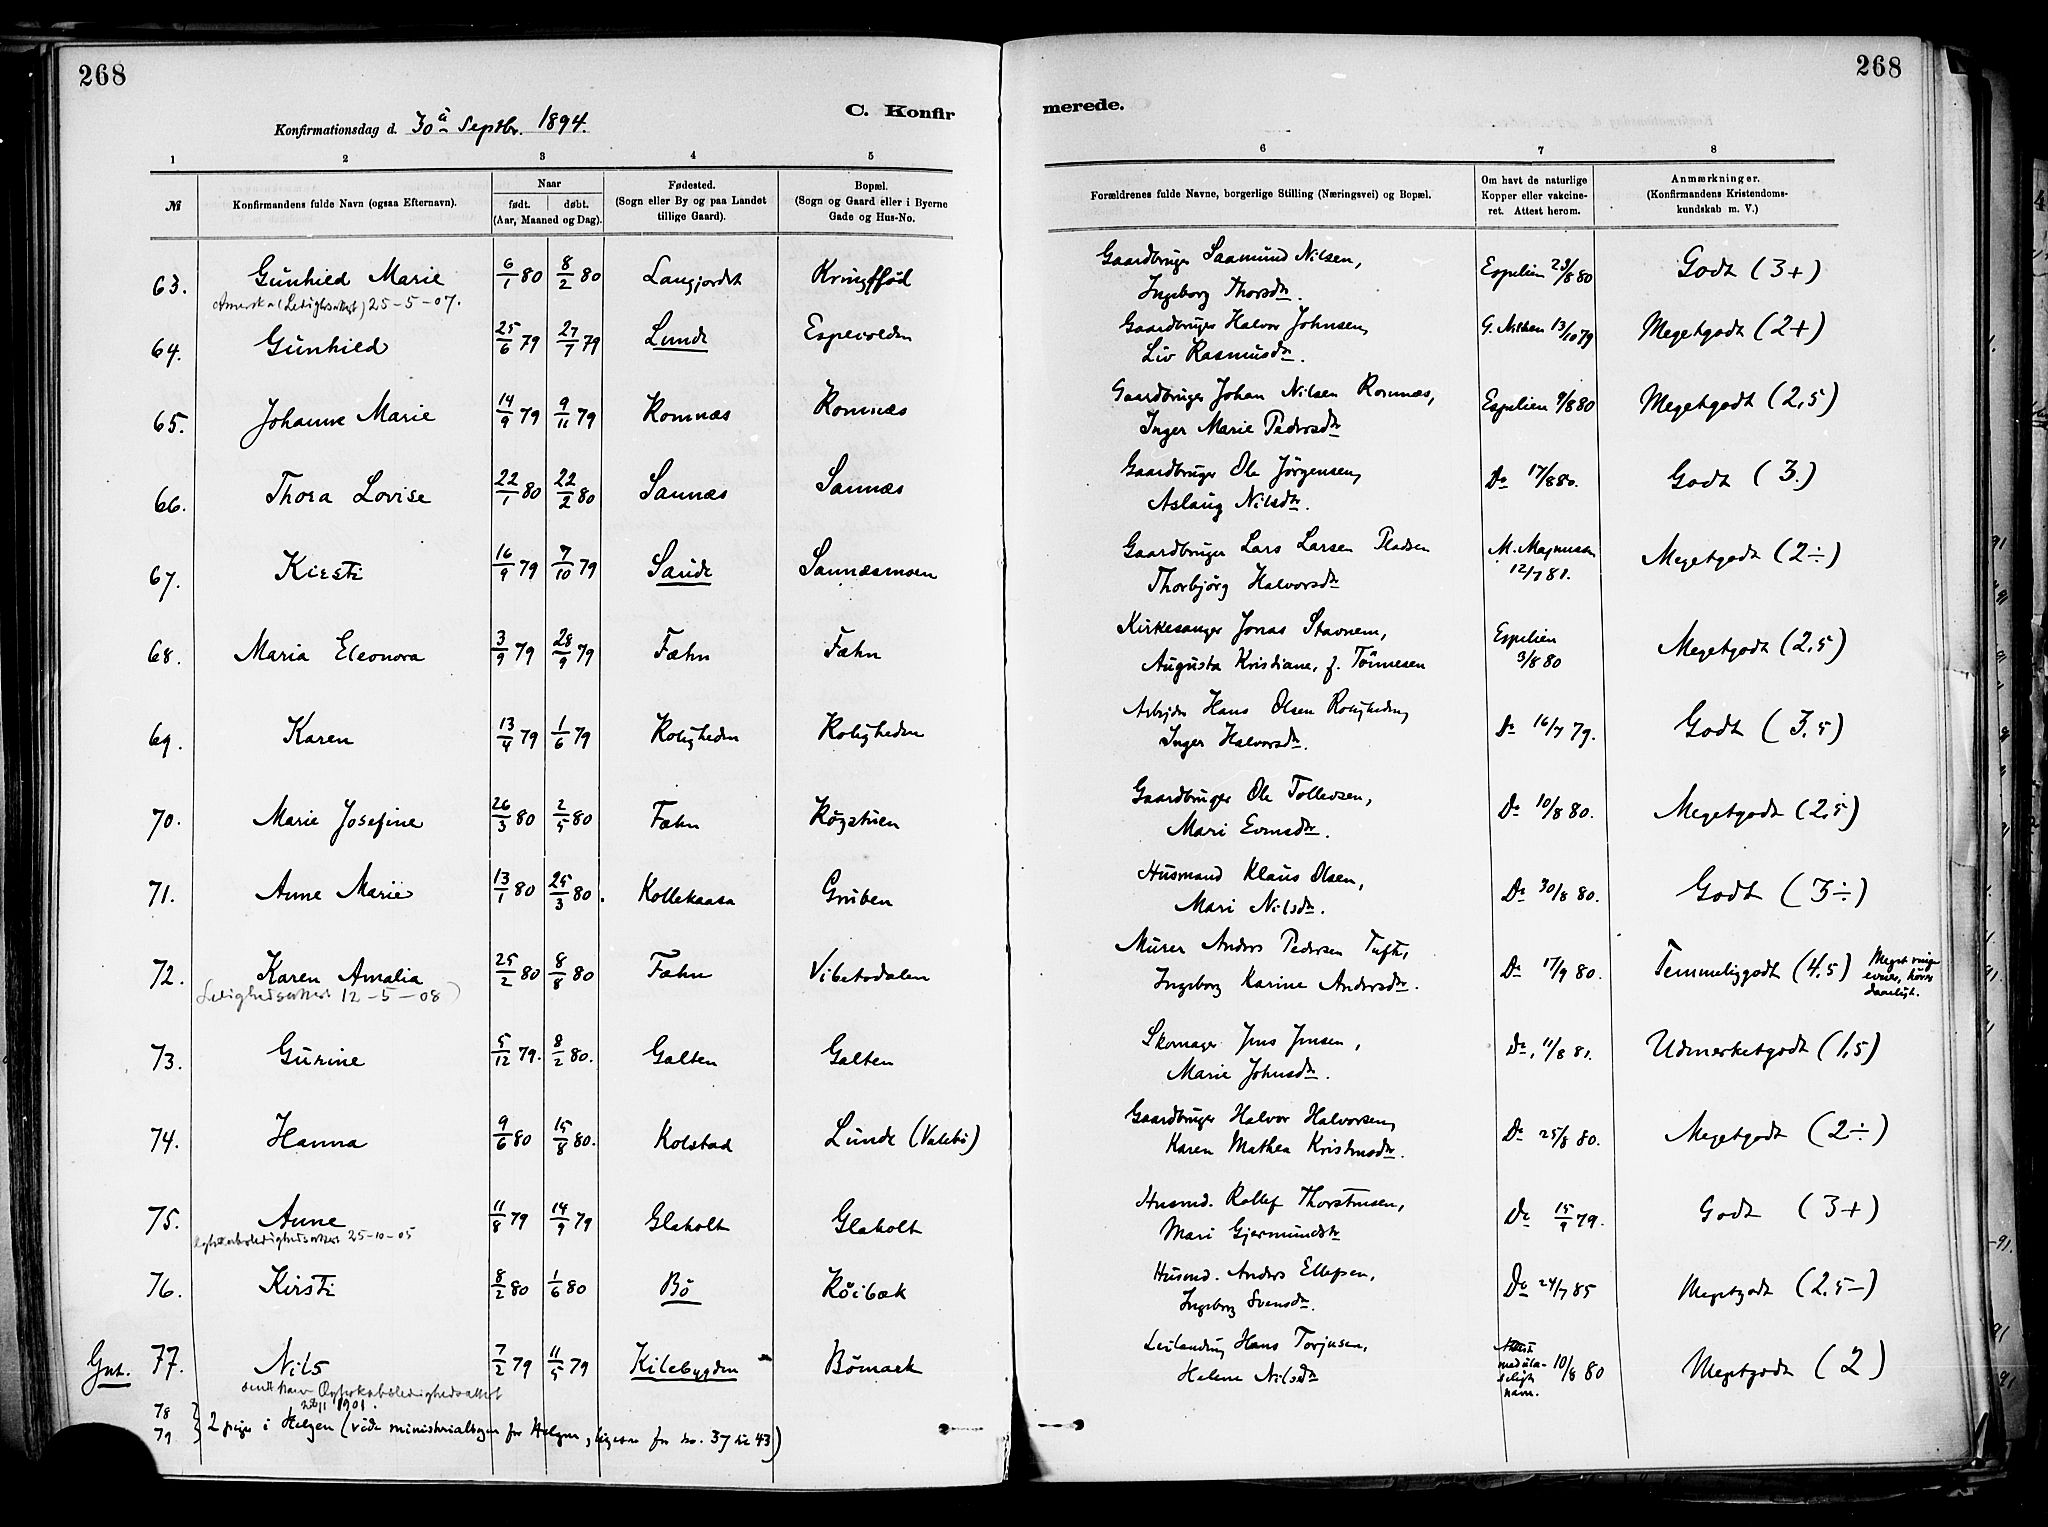 268
268
C. Konfir
merede.
Konfirmationsdag d. 30ᵗᵉ Septbr. 1894.
1 2 3 4 5 6 7 8
№
Konfirmandens fulde Navn (ogsaa Efternavn).
Naar
født. døbt.
(Aar, Maaned og Dag).
Fødested.
(Sogn eller By og paa Landet
tillige Gaard).
Bopæl.
(Sogn og Gaard eller i Byerne
Gade og Hus-No.
Forældrenes fulde Navne, borgerlige Stilling (Næringsvei) og Bopæl.
Om havt de naturlige
Kopper eller vakcine-
ret. Attest herom.
Anmærkninger.
(Konfirmandens Kristendoms-
kundskab m. V.)
63. Gunhild Marie 6/1 80 8/2 80 Langjordet Gaardbruger Saamund Nilsen, Espelien 23/8 80 Godt (3+)
(Ledighedsattest) 25-5-07. Ingeborg Thorsdtr.
64. Gunhild 25/6 79 27/7 79 Lunde Espevolden Gaardbruger Halvor Johnsen, G. Nilsen 13/10 79 Megetgodt (2+)
Liv Rasmusdtr.
65. Johanne Marie 14/9 79 9/11 79 Romnæs Romnæs Gaardbruger Johan Nilsen Romnæs, Espelien 9/8 80 Megetgodt (2,5)
Inger Marie Pedersdtr
66. Thora Lovise 22/1 80 22/2 80 Sannæs Sannæs Gaardbruger Ole Jørgensen, Do 17/8 80. Godt (3.)
Aslaug Nilsdtr.
67. Kirsti 16/9 79 7/10 79 Saude Sannæsmoen Gaardbruger Lars Larsen Pladsen M. Magnussen Megetgodt (2÷)
Thorbjørg Halvorsdtr 12/7 81.
68. Maria Eleonora 3/9 79 28/9 79 Fæhn Fæhn Kirkesanger Jonas Stavnem, Espelien Megetgodt (2,5)
Augusta Kristiane, f. Tönnesen 3/8 80
69. Karen 13/4 79 1/6 79 Roligheden Roligheden Arbeider Hans Olsen Roligheden, Do 16/7 79. Godt (3,5)
Inger Halvorsdtr.
70. Marie Josefine 26/3 80 2/5 80 Fæhn Røgstuen Gaardbruger Ole Tollevsen, Do 10/8 80. Megetgodt (2,5)
Mari Evensdtr.
71. Anne Marie 13/1 80 25/3 80. Kollekaasa Gruben Husmand Klaus Olsen, Do 30/8 80. Godt (3÷)
Mari Nilsdtr.
72. Karen Amalia 25/2 80 8/8 80 Fæhn Vibetodalen Murer Anders Pedersen Tufte, Do 17/9 80. Temmeliggodt (4.5) Meget ringe
Ledighedsattest 12-5-08) Ingeborg Karine Andersdtr. evner, hører
daarligt.
73. Gurine 5/12 79. 8/2 80. Galten Galten Skomager Jens Jensen, Do, 11/8 81. Udmerketgodt (1,5)
Marie Johnsdtr.
74. Hanna 9/6 80 15/8 80. Kolstad Lunde (Valebø) Gaardbruger Halvor Halvorsen, Do 25/8 80. Megetgodt (2÷)
Karen Mathea Kristensdtr.
75. Anne 11/8 79 14/9 79 Glaholt Glaholt Husmd. Rollef Thorstensen, Do 15/9 79. Godt (3+)
25-10-05 Mari Gjermundsdtr
76. Kirsti 8/2 80 1/6 80 Bø Røibæk Husmd. Anders Ellefsen, Do 24/7 85 Megetgodt (2,5-)
Ingeborg Svensdtr.
Gut. 77. Nils 7/2 79 11/5 79 Kilebygden Bømark Leilending Hans Torjusen, 10/8 80 Megetgodt (2)
Helene Nilsdtr navn.
1901.
78
79 } 2 piger i Helgen (vide ministerialbogen for Helgen, ligesom for no. 37 til 43)